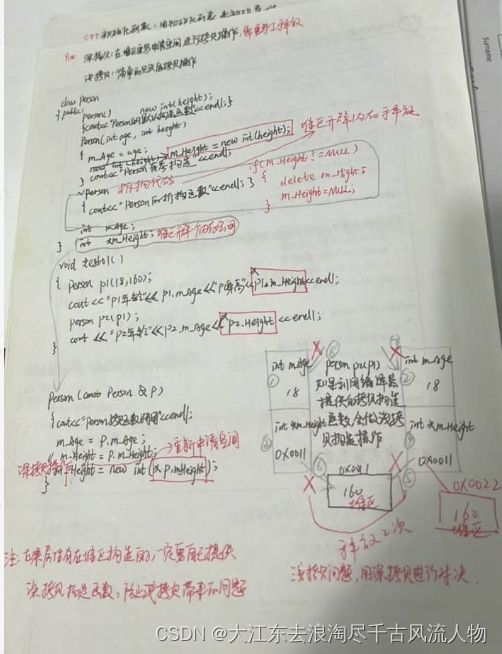 深拷贝: 在堆区重新申请空间 进行拷贝操作
浅拷贝: 简单的赋值拷贝操作
class Person
{ public:
Person() new int(height);
{cout<<"Person的默认构造函数"<<endl;}
Person(int age, int height)
{ m_Age = age;
m_Height = new int(height);
} cout<<"Person有参构造"<<endl;
~Person 析构代码 if(m_Height!=NULL)
{ cout<<"Person的析构函数"<<endl; } { delete m_Height;
} m_Height=NULL;
int m_Age;
} int *m_Height;
void test01()
{ Person p1(18,160);
cout<<"p1年龄"<<p1.m_Age<<"p1身高"<<*p1.m_Height<<endl;
Person p2(p1);
cout<<"p2年龄"<<p2.m_Age<<*p2.Height<<endl;
}
Person(const Person & p)
{cout<<"Person拷贝函数调用"<<endl;
m_Age = p.m_Age;
m_Height = p.m_Height; 重新申请空间
深拷贝操作 m_Height = new int(*p.mHeight);
}
int m_Age
18
Person p2(p1)
如果利用编译器
提供的拷贝构造
函数,会做浅拷
贝构造操作
int m_Age
18
int *m_Height
0x0011
int *m_Height
0x0011
0x0011
160
堆区
0x0022
160
堆区
释放2次
浅拷贝问题,用深拷贝进行解决
注:如果属性有在堆区构造的,一定要自己提供
深拷贝构造函数,防止浅拷贝带来的问题
CSDN @大江东去浪淘尽千古风流人物